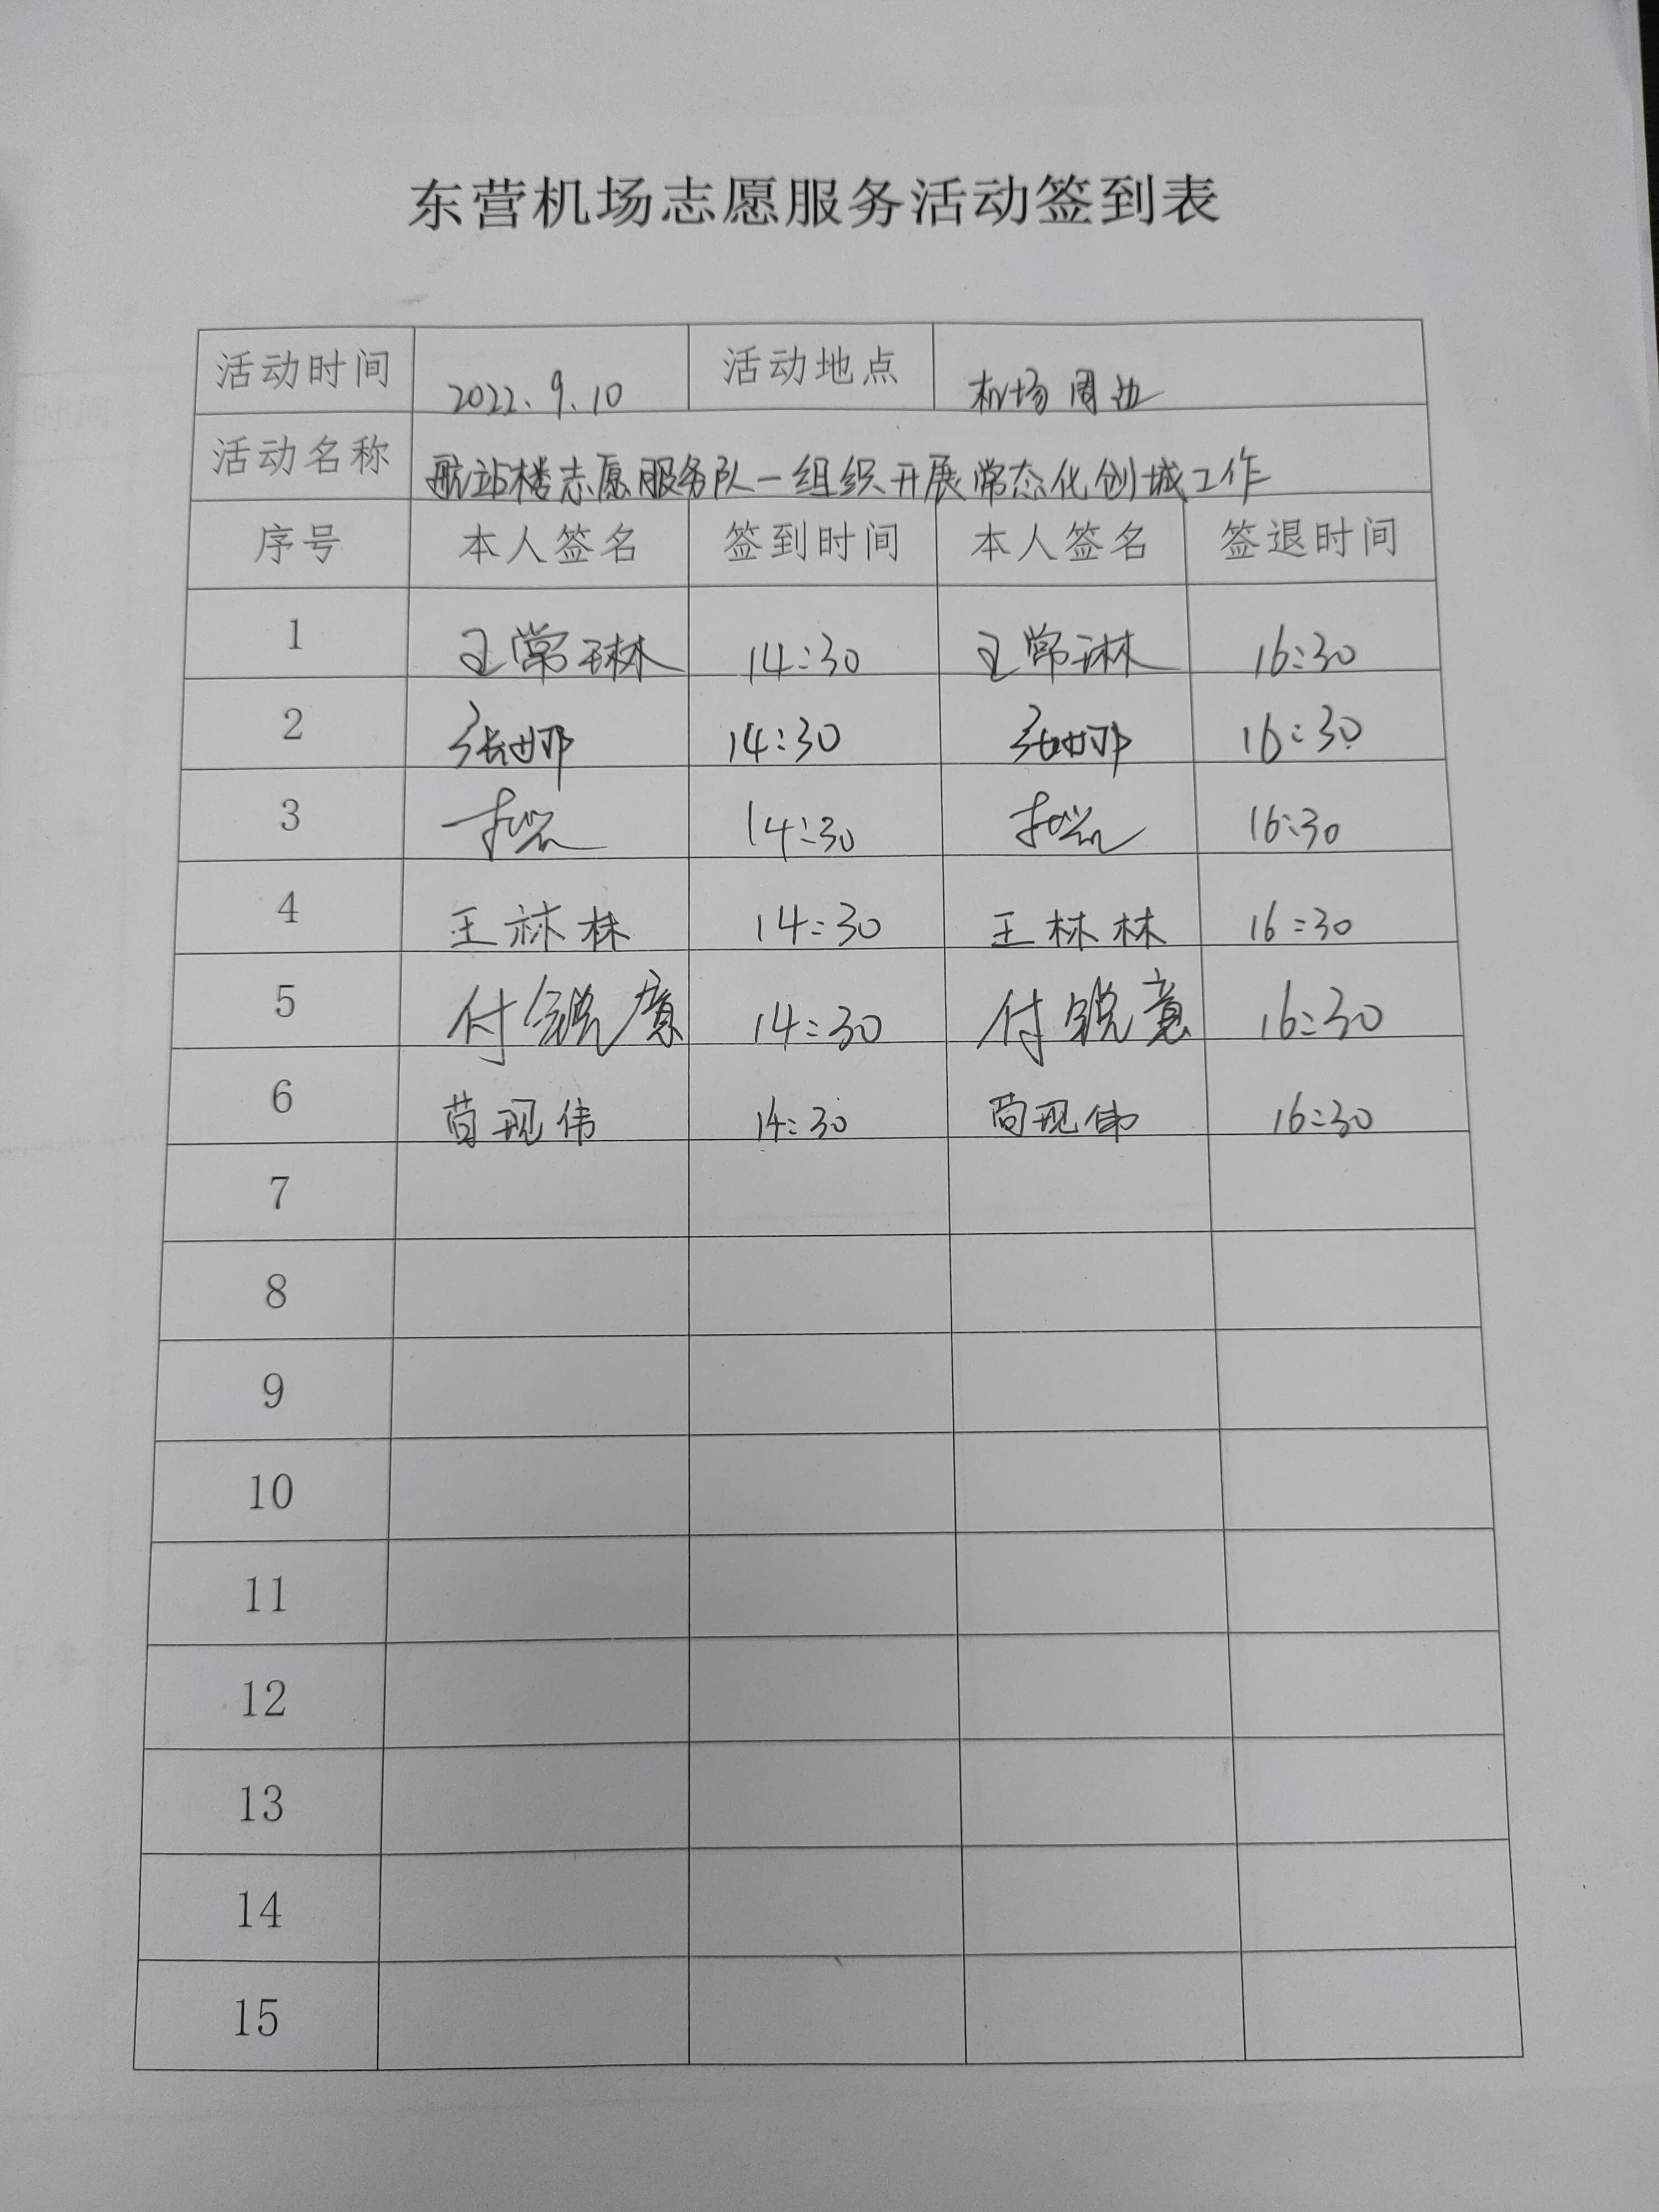 东营机场志愿服务活动签到表
活动时间 2022.9.10 活动地点 机场周边
活动名称 航站楼志愿服务队-组织开展常态化创城工作
序号 本人签名 签到时间 本人签名 签退时间
1 王常琳 14:30 王常琳 16:30
2 张娜 14:30 张娜 16:30
3 14:30 16:30
4 王林林 14:30 王林林 16:30
5 付锐意 14:30 付锐意 16:30
6 苘现伟 14:30 苘现伟 16:30
7
8
9
10
11
12
13
14
15